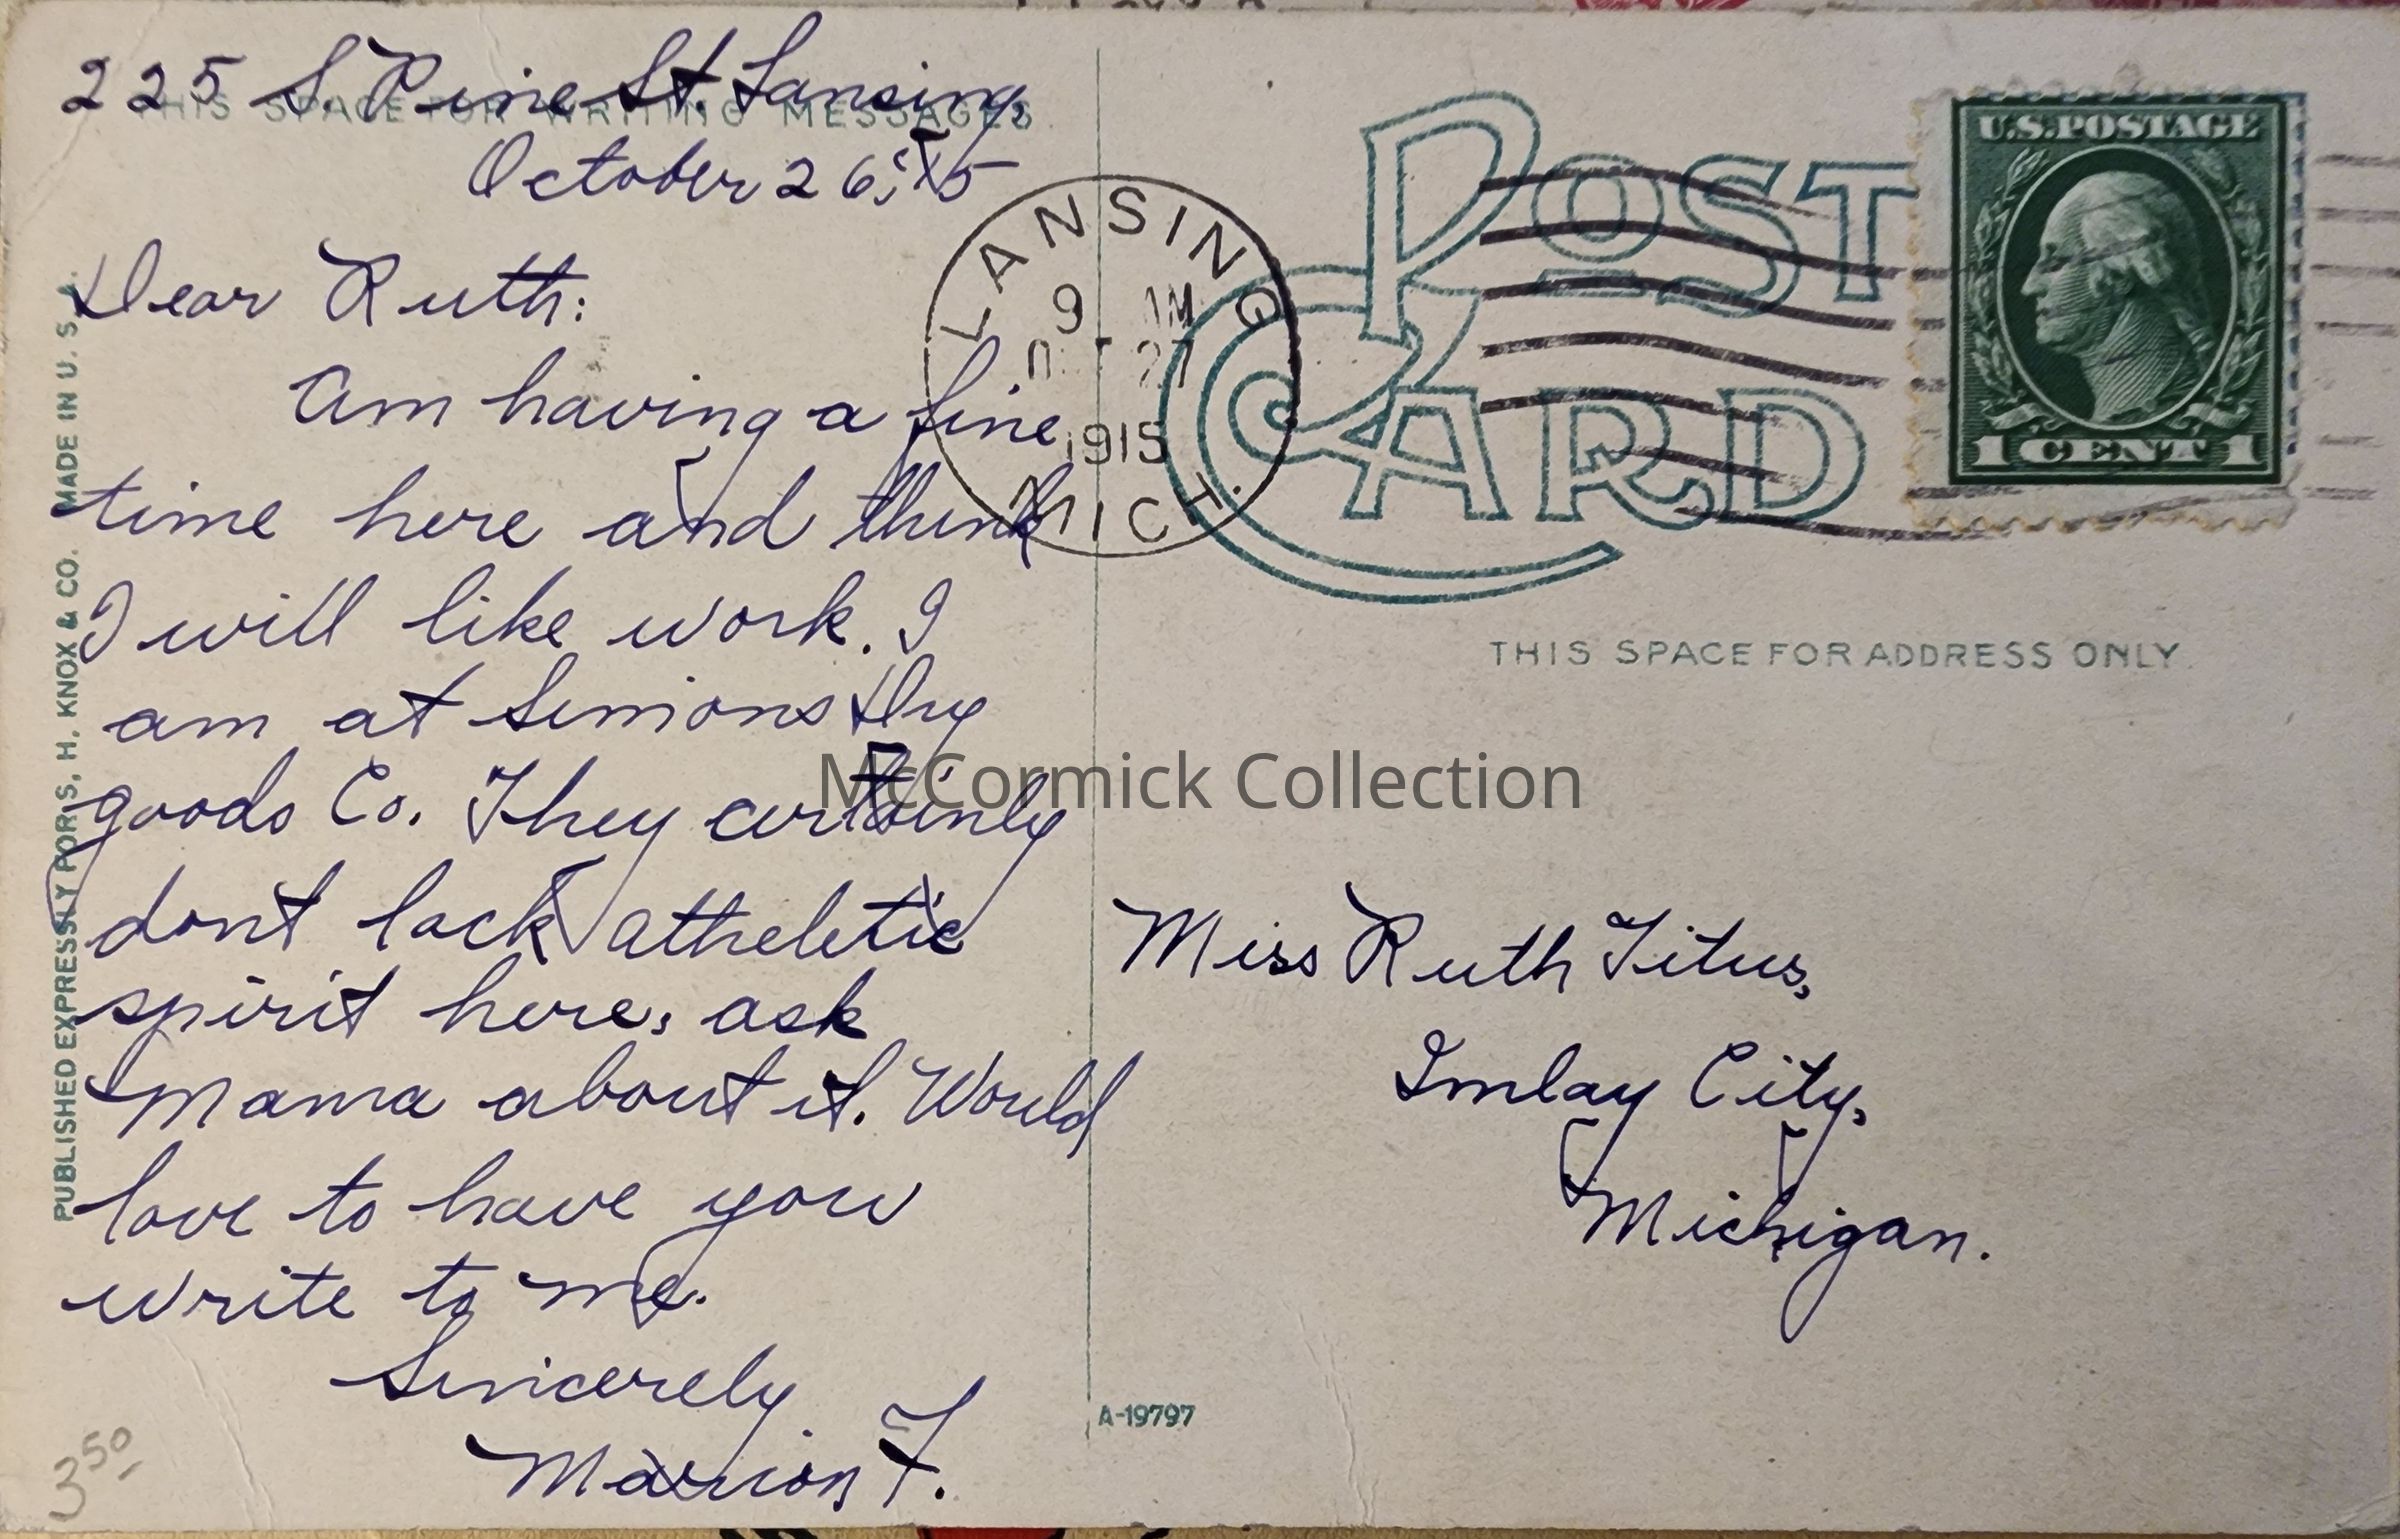 225 S. Pine St. Lansing,
THIS SPACE FOR WRITING MESSAGES
October 26, '15
Dear Ruth:
Am having a fine
time here and think
I will like work. I
am at Simons Dry
goods Co. They certainly
dont lack atheletic
spirit here, ask
Mama about it. Would
love to have you
write to me.
Sincerely
Marion F.
3 50
PUBLISHED EXPRESSLY FOR S. H. KNOX & CO. MADE IN U. S. A.
LANSING
9 AM
27
1915
MICH.
POST
CARD
U.S. POSTAGE
1 CENT 1
THIS SPACE FOR ADDRESS ONLY.
McCormick Collection
Miss Ruth Titus,
Imlay City,
Michigan.
A-19797